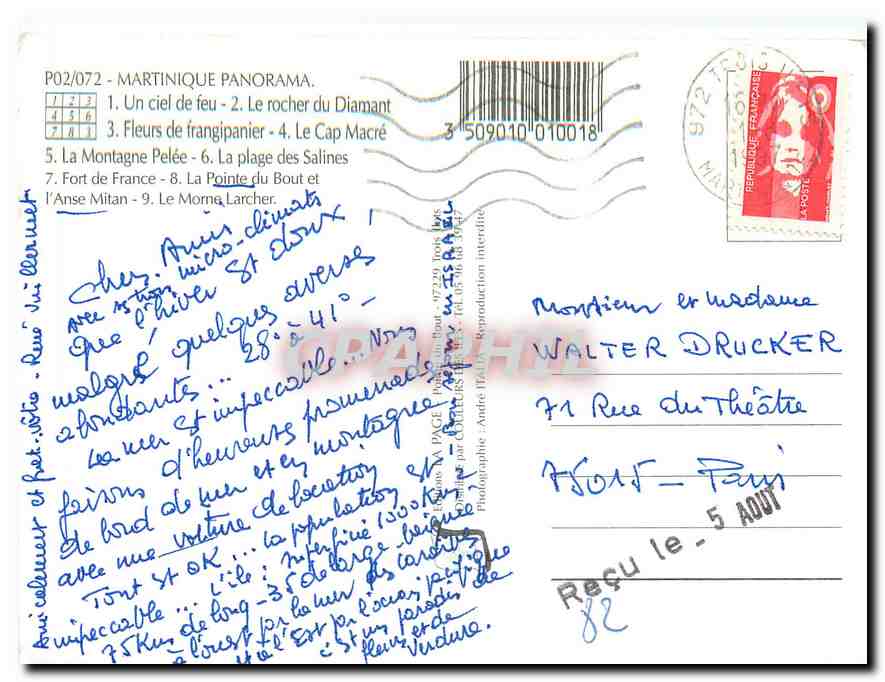 P02/072 - MARTINIQUE PANORAMA.
1 2 3
4 5 6
7 8 9
1. Un ciel de feu - 2. Le rocher du Diamant
3. Fleurs de frangipanier - 4. Le Cap Macré
5. La Montagne Pelée - 6. La plage des Salines
7. Fort de France - 8. La Pointe du Bout et
l'Anse Mitan - 9. Le Morne Larcher.
3 509010 010018
972 TROIS
REPUBLIQUE FRANÇAISE
LA POSTE
Chers Amis
avec micro-climats
que l'hiver est doux !
malgré quelques averses
abondantes... 28° à 41° -
La mer est impeccable... Nous
faisons d'heureuses promenades
de bord de mer et en montagne
avec une voiture de location
Tout est OK... la population est
impeccable... L'île : superficie 1000 Km2
75 Kms de long - 35 de large - baignée
à l'ouest par la mer des Caraïbes
et à l'Est par l'océan pacifique
c'est un paradis de
fleurs et de
verdure.
- Bon retour en ISRAEL
Amicalement et frat. vôtre - René Vuillermet
Editions LA PAGE - Pointe du Bout - 97229 Trois Ilots
Distribué par COULEURS DES ILES - Tél. 05 96 68 39 47
Photographie : André ITALIA - Reproduction interdite
CPAPHIL
Monsieur et Madame
WALTER DRUCKER
71 Rue du Théâtre
75015 - Paris
Reçu le - 5 AOUT
82